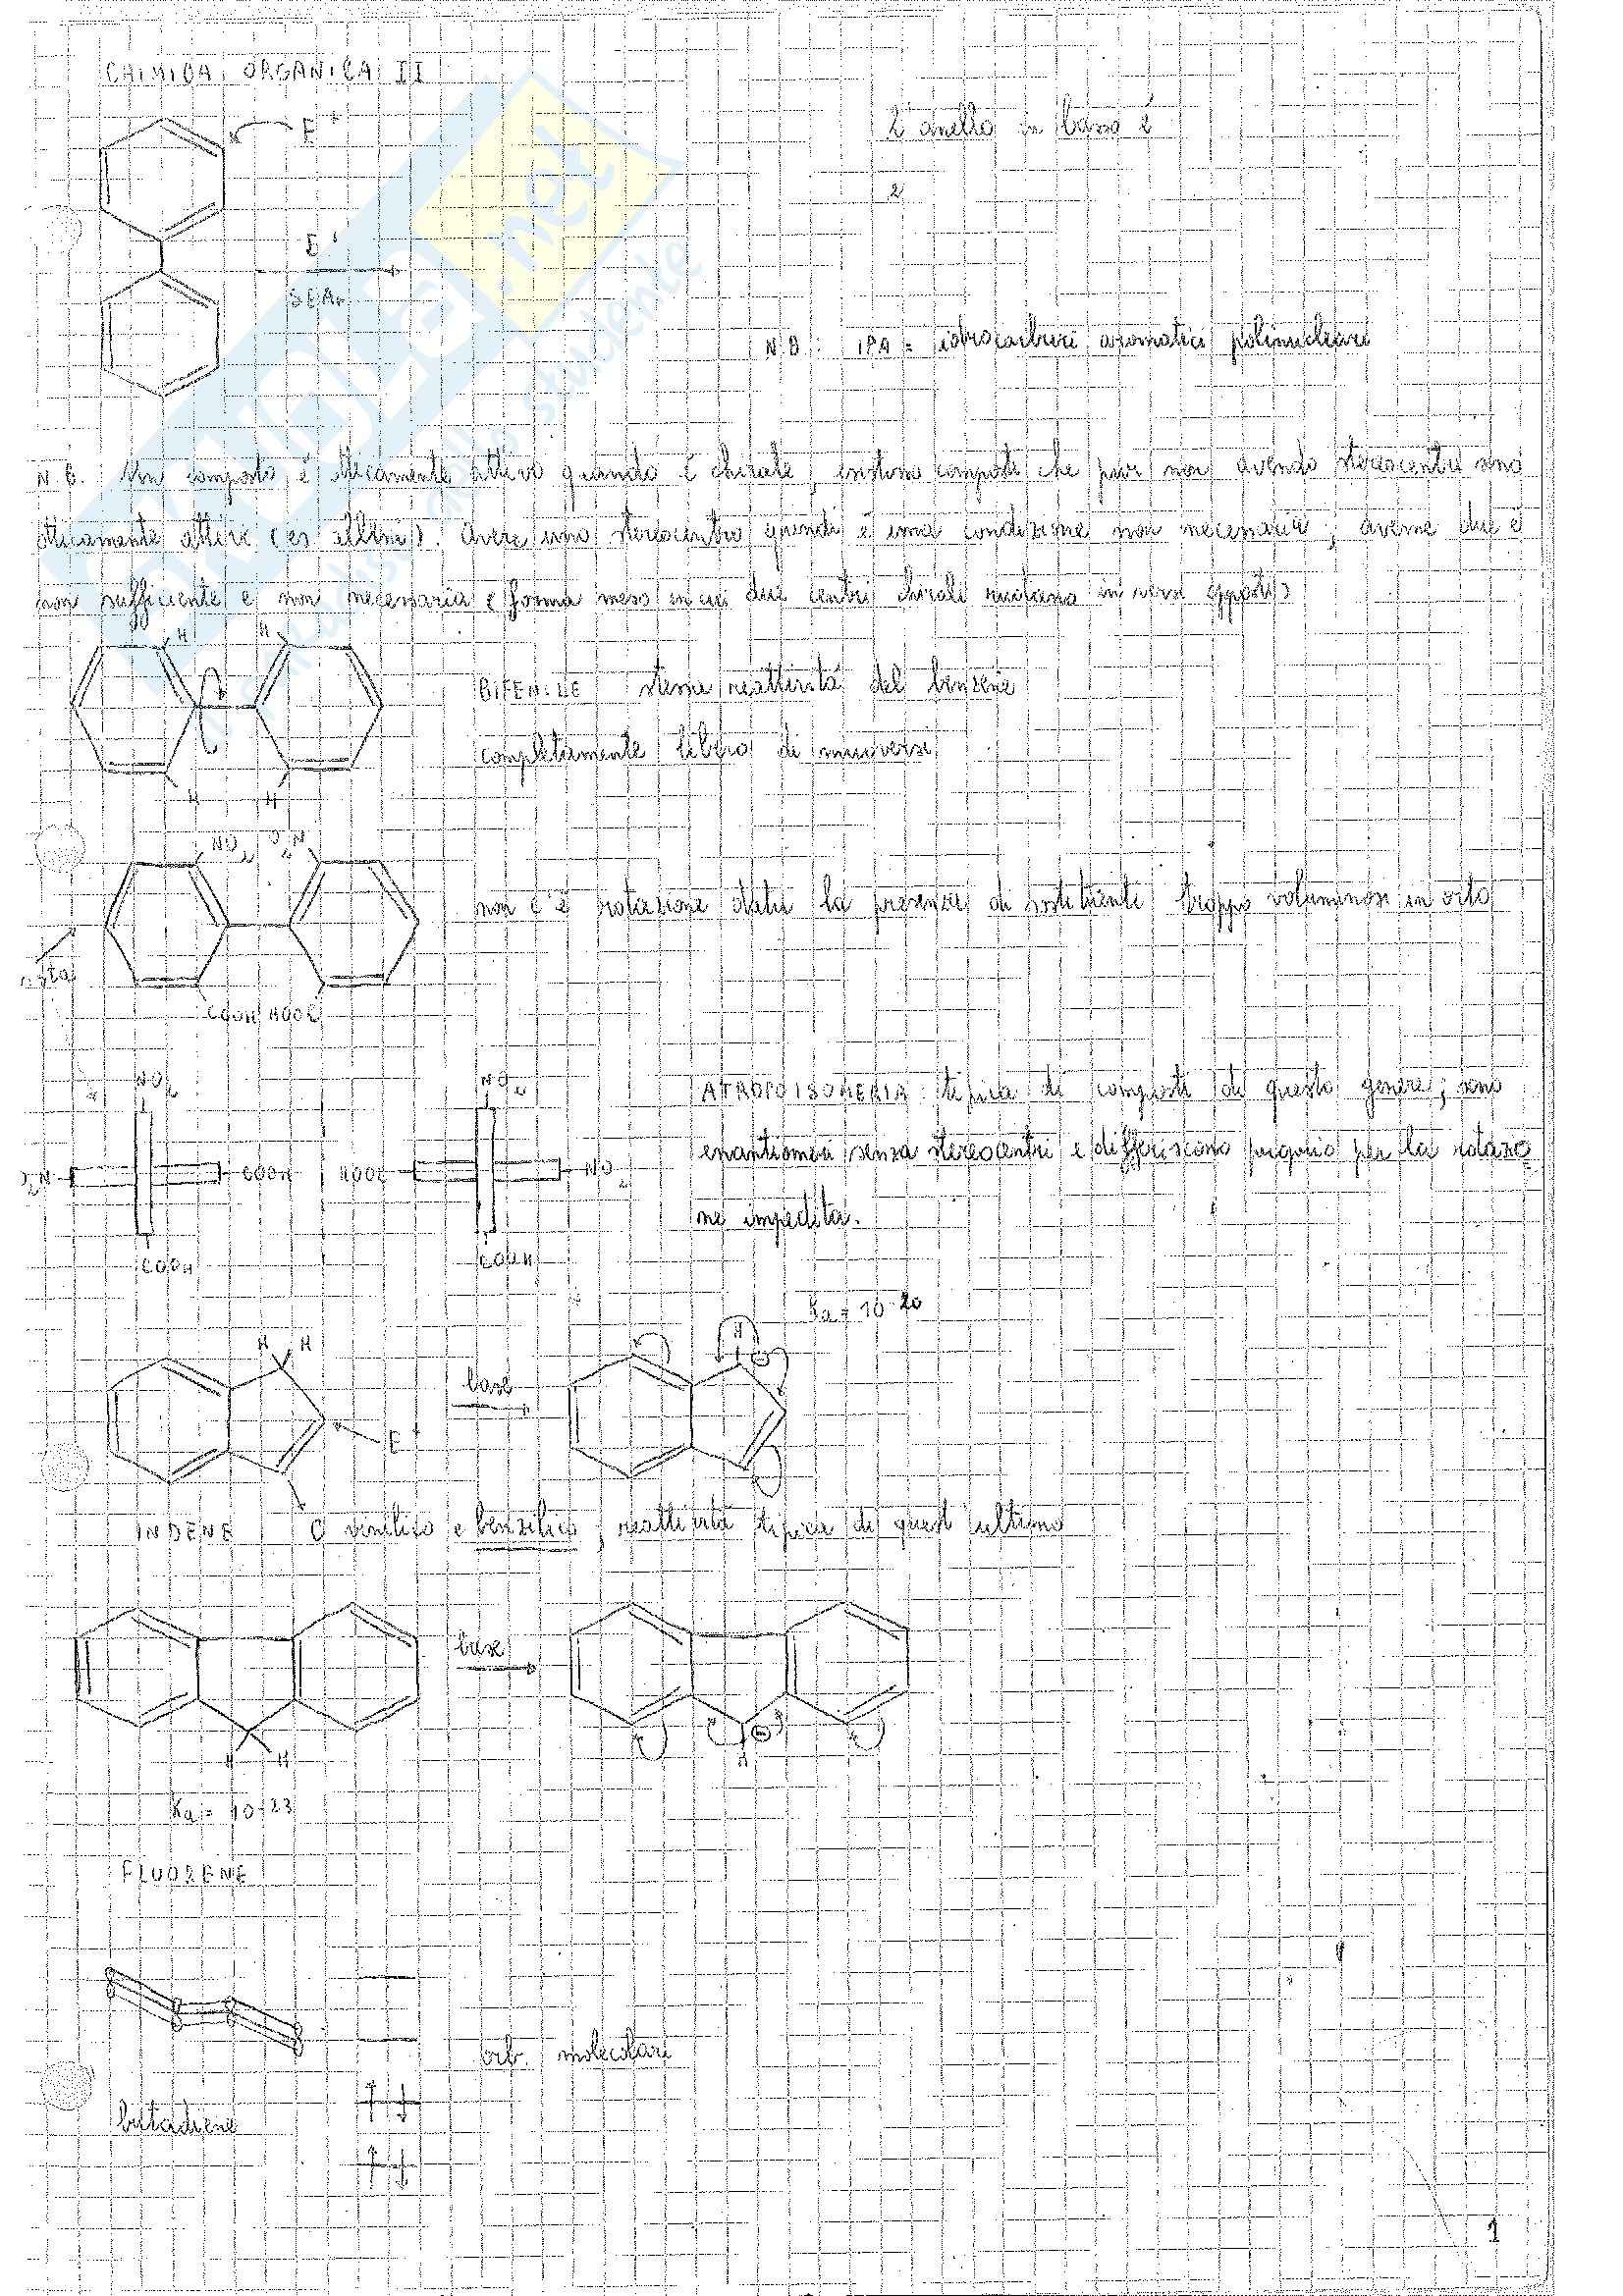 CHIMICA ORGANICA II
E+
L'anello in basso è
2
E+
SEAr
N.B. IPA = idrocarburi aromatici polinucleari
N.B. Un composto è otticamente attivo quando è chirale, esistono composti che pur non avendo stereocentri sono
otticamente attivi (es alleni). Avere uno stereocentro quindi è una condizione non necessaria; averne due è
non sufficiente e non necessaria (forma meso in cui due centri chirali ruotano in versi opposti)
H H
BIFENILE stessa reattività del benzene
completamente libero di muoversi
H H
NO2 O2N
non c'è rotazione data la presenza di sostituenti troppo voluminosi in orto
COOH HOOC
NO2 NO2
ATROPOISOMERIA tipica di composti di questo genere; sono
enantiomeri senza stereocentri e differiscono proprio per la rotazio
O2N COOH HOOC NO2
ne impedita.
COOH COOH
Ka = 10-20
H H H
base
E+
INDENE C vinilico e benzilico, reattività tipica di quest'ultimo
base
H H H
Ka = 10-23
FLUORENE
orb. molecolari
butadiene
1